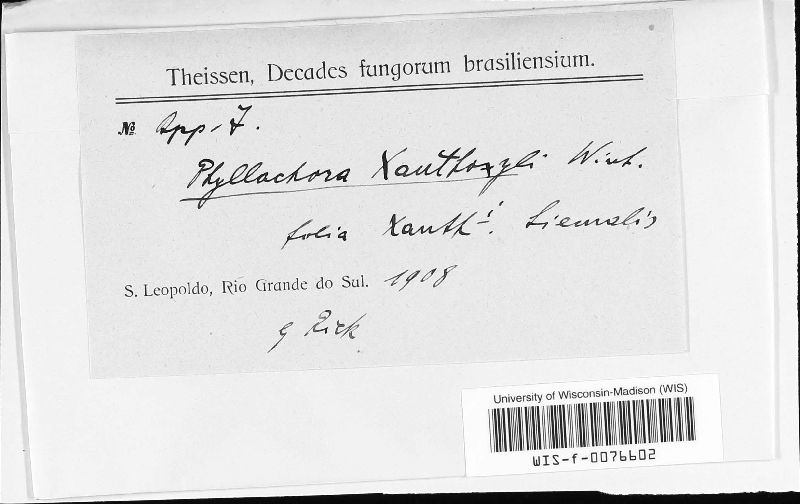 Theissen, Decades fungorum brasiliensium.
№ App. 7.
Phyllachora Xanthoxyli Wint.
folia Xanthi. hiemalis
S. Leopoldo, Rio Grande do Sul. 1908
Rick
University of Wisconsin-Madison (WIS)
WIS-f-0076602